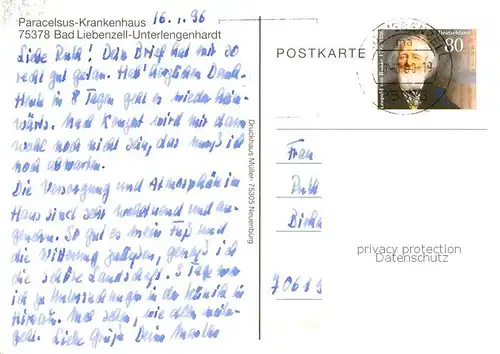 Paracelsus-Krankenhaus 16.1.96
75378 Bad Liebenzell-Unterlengenhardt
Liebe Ruth! Dein Brief hat mir so
recht gut getan. Hab herzlichen Dank.
Heute in 8 Tagen geht es wieder heim-
wärts. Nach Kongert wird mir dann
wohl noch nicht sein, das muß ich
noch abwarten.
Die Versorgung und Atmosphäre im
Haus sind sehr wohltuend und an-
genehm. So gut es mein Fuß und
die Witterung zulassen, genieß ich
die schöne Landschaft. 3 Tage
ich zu Untersuchungen in der Klinik in
Hirsau. Mal sehen, wie alles weiter-
geht. Liebe Grüße Deine
Druckhaus Müller · 75305 Neuenbürg
POSTKARTE
Deutschland
80
Leopold von Ranke
Frau
Ruth
70619
privacy protection
Datenschutz